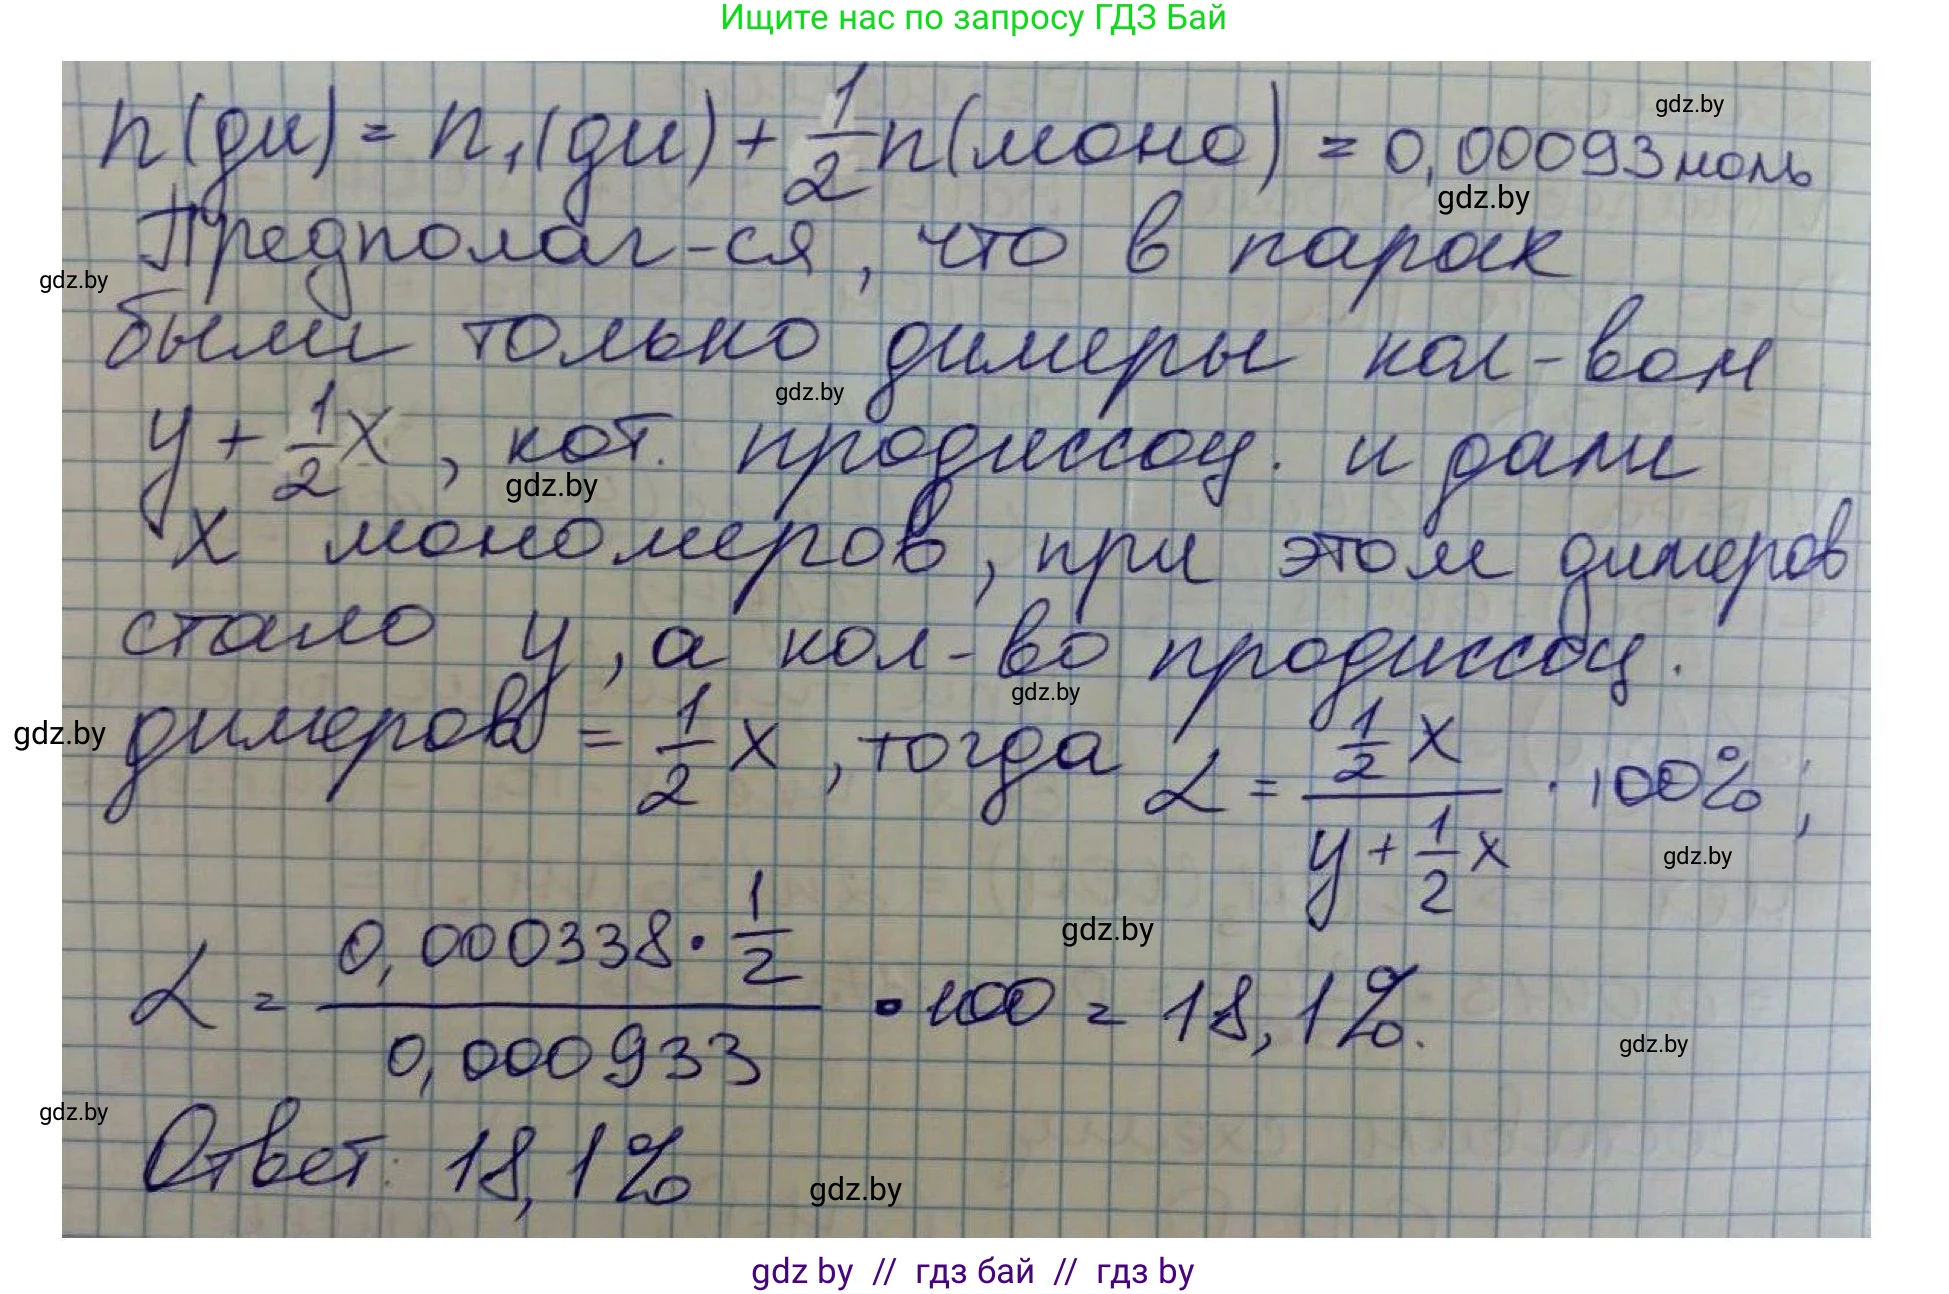 Ищите нас по запросу ГДЗ Бай
gdz.by
n(ди) = n₁(ди) + 1/2 n(моно) = 0,00093 моль
gdz.by
Предполаг-ся, что в парах
gdz.by
были только димеры кол-вом
gdz.by
y + 1/2 x, кот. продиссоц. и дали
gdz.by
x мономеров, при этом димеров
стало y, а кол-во продиссоц.
gdz.by
gdz.by
димеров = 1/2 x, тогда α = (1/2 x)/(y + 1/2 x) · 100%;
gdz.by
gdz.by
α = (0,000338 · 1/2)/(0,000933) · 100 = 18,1%.
gdz.by
gdz.by
Ответ: 18,1%
gdz.by
gdz by // гдз бай // гдз by